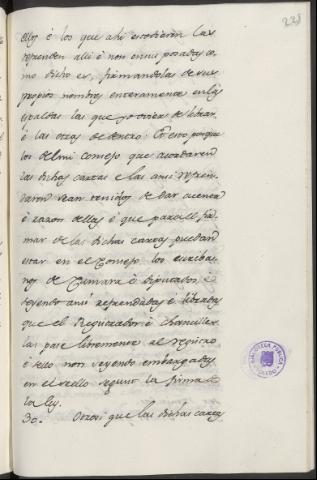 231
ellos é los que ahi escodieren las
refrenden alli é non en sus posadas co-
mo dicho es, firmandolas de sus
propios nombres enteramente en las
espaldas las que yo oviere de librar
é las otras de dentro: Et esto porque
los del mi consejo que acordaren
las dichas cartas e las ansi refren-
daren sean tenidos de dar cuenta
é razon dellas é que para las fir-
mar de las dichas cartas puedan
estar en el Consejo los escriba-
nos de Camara é diputados, é
seyendo ansi refrendadas é libradas
que el Registrador é Chanciller
las pase libremente al registro
é sello non seyendo embargadas
en el sello segunt la firma de
la ley.
30. Otrosi que las dichas cartas
BIBLIOTECA PUBLICA
TOLEDO